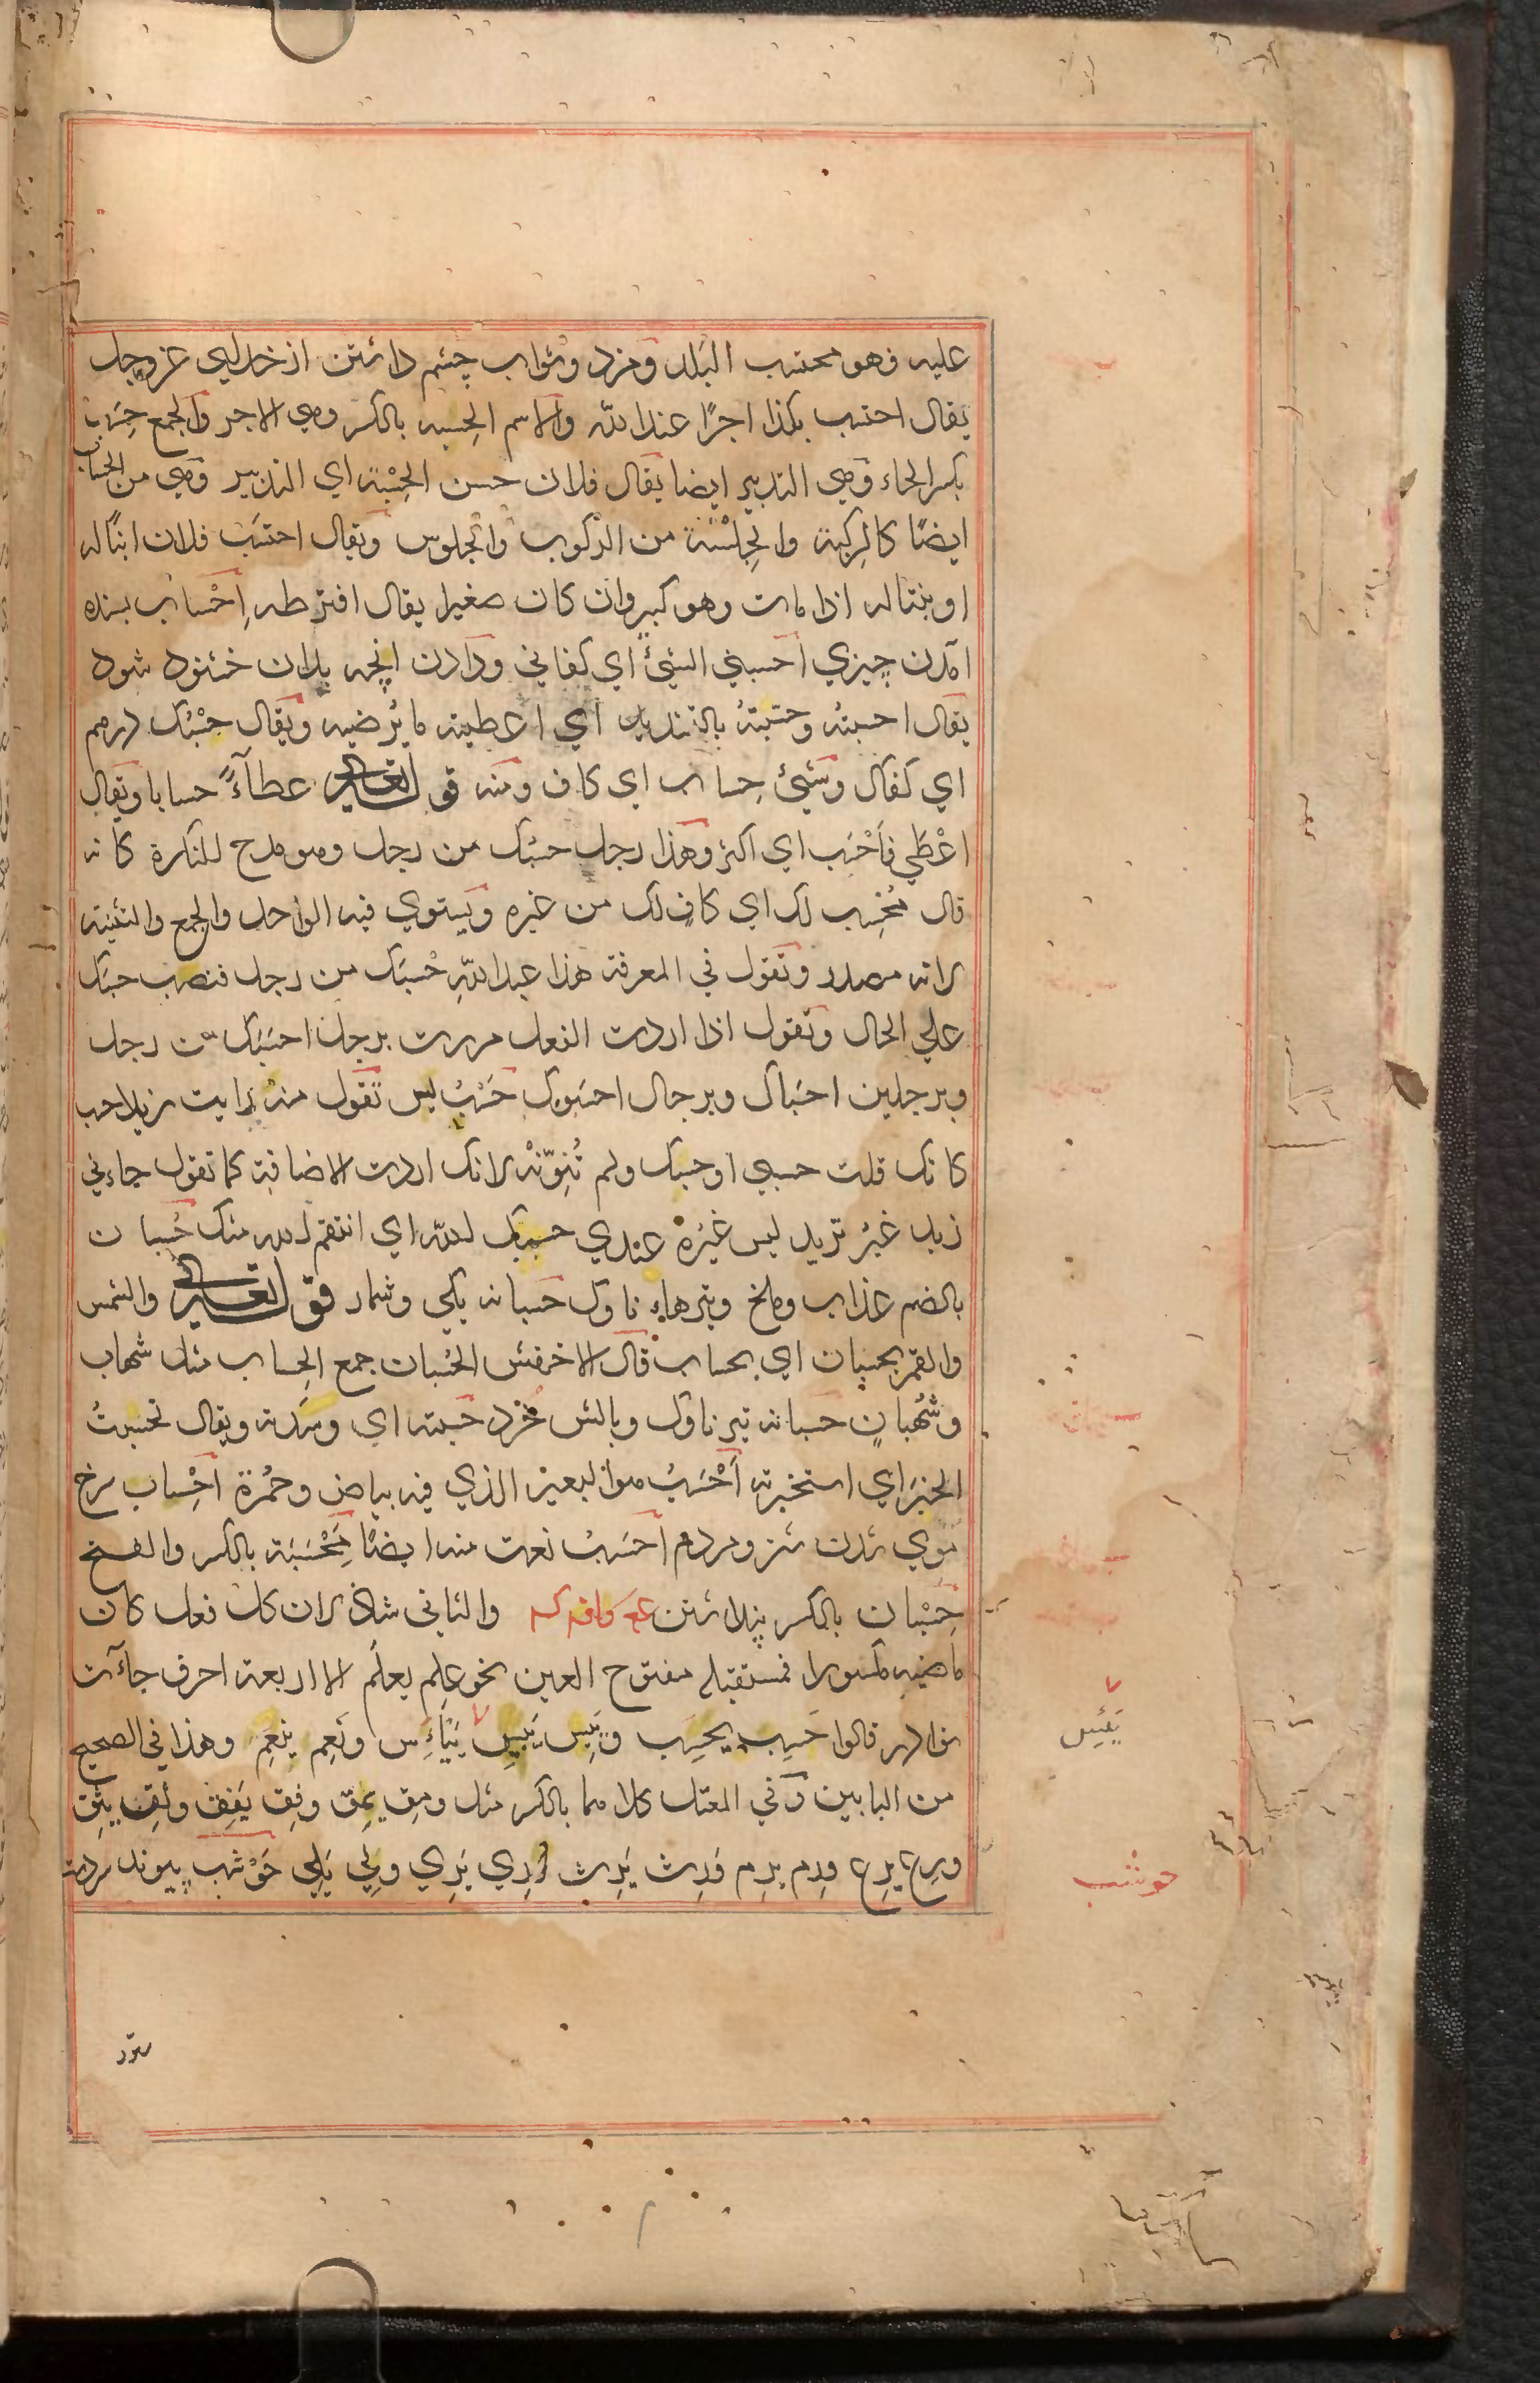 عليه فهو محتسب البلد ومزد وثواب چشم داشتن از خدای عز وجل
يقال احتسب بكذا اجرًا عند الله والاسم الحِسبه بالكسر وهي الاجر والجمع حِسَب
بكسر الحاء وهي التدبير ايضا يقال فلان حسن الحِسْبة اي التدبير وهي من الحساب
ايضًا كالرِكبة والجِلْسَة من الركوب والجلوس ويقال احتسَب فلان ابنًا له
او بنتا له اذا مات وهو كبير وان كان صغيرا يقال افترطه اِحْساب بسنده
آمدن چيزي احسبني الشيئ اي كفاني ودادن انچه بدان خشنود شود
يقال احسبته وحسّبتهُ بالتشديد اي اعطيته ما يُرضيه ويقال حَسْبُك درهم
اي كفاك وشيئ حِساب اي كاف ومنه قوله تعالى عطآءً حسابا ويقال
اعْطَي فاَحْسَب اي اكثر وهذا رجل حسبُك من رجل وهو مدح للنكرة كانه
قال مُحْسِب لك اي كافٍ لك من غيره ويستوي فيه الواحد والجمع والتثنيه
لانه مصدر وتقول في المعرفة هذا عبد اللهِ حْسبَك من رجل فنصب حسبَك
علي الحال وتقول اذا اردت الفعل مررت برجل احسَبَك من رجل
وبرجلين احسَباك وبرجال احسَبوك حَسْبُ ليس تقول منهُ رايت زيدا حسب
كانك قلت حسبي او حسبك ولم تُنوّنْه لانك اردت الاضافة كما تقول جاءني
زيد غيرُ تريد ليس غيرُه عندي حسيبك لله اي انتقم الله منك حُسبان
بالضم عذاب وملخ وتيرهاء ناوك حسبانه يكي وشمار قوله تعالى والشمس
والقمر بحسبان اي بحساب قال الاخفش الحُسْبان جمع الحِساب مثل شهاب
وشُهْبانٍ حسبانه تير ناوك وبالش خرد حسبته اي وسّدته ويقال تحسبتُ
الخبَر اي استخبرته اَحْسَبُ هو البعير الذي فيه بياض وحُمْرة اِحْساب سرخ
موي شدن شتر ومردم احسَبُ نعت منه ايضًا مَحْسَبَة بالكسر والفتح
حِسْبان بالكسر پنداشتن والثاني شاذ لان كل فعل كان
ماضيه مكسورا فمستقبله مفتوح العين نحو علِم يعلَم الا اربعة احرف جاءت
نوادر قالوا حَسِب يحسِب ويَبِس يَيبِس يَيْأَءِس ونَعِم ينعِم وهذا في الصحيح
من البابين وفي المعتل كلاهما بالكسر مثل ومِق يمِق وفِق يَفِق وثِق يثِق
ورِع يرِع ورِم يرِم وَرِث يَرِث وَرِي يَرِي ولِي يَلِي حَوْشَب پيوند سردست
يَيْئِسِ
حوشب